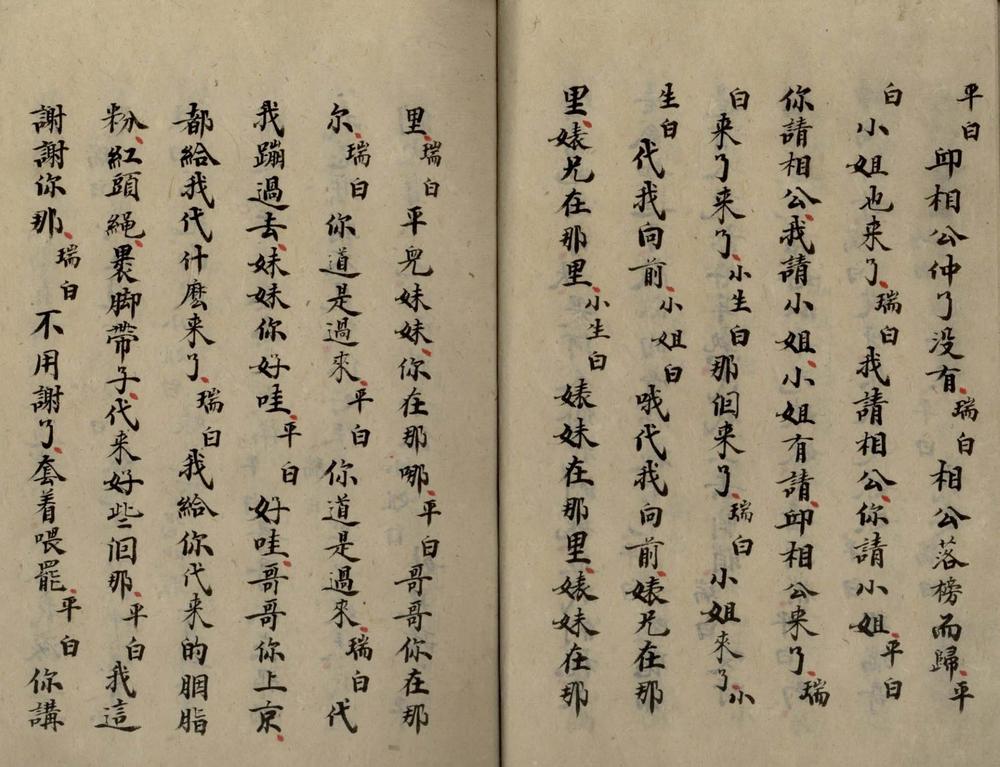 平白邱相公仲了没有、瑞白相公落榜而歸、平
白小姐也来了、瑞白我請相公、你請小姐、平白
你請相公、我請小姐、小姐有請、邱相公来了、瑞
白来了来了、小生白那佪来了、瑞白小姐来了、小
生白代我向前、小姐白哦代我向前、婊兄在那
里、婊兄在那里、小生白婊妹在那里、婊妹在那
里、瑞白平皃妹妹、你在那哪、平白哥哥你在那
尔、瑞白你道是過來、平白你道是過來、瑞白代
我蹦過去、妹妹你好哇、平白好哇、哥哥你上京、
都給我代什麽来了、瑞白我給你代来的胭脂
粉、紅頭繩、裹脚帶子、代来好些佪那、平白我這
謝謝你那、瑞白不用謝了、套着喂罷、平白你講